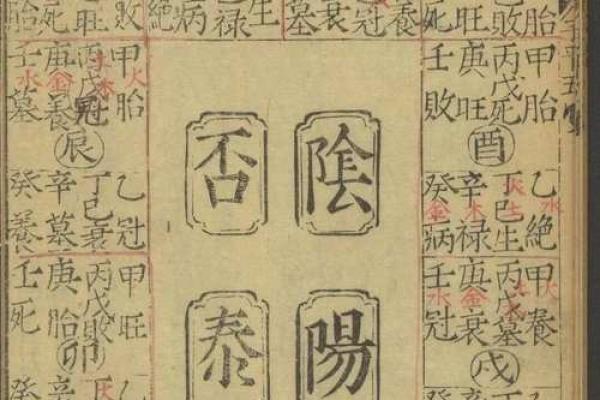 胎
敗
旺
死
甲胎
丙戊死
庚旺
壬敗
酉
乙絶
丁巳生
辛禄
癸病
甲養
丙戊墓
庚衰
壬冠
戌
養
冠
衰
墓
生
禄
病
絶
陰陽
否泰
敗
旺
死
胎
甲胎
丙戊冠
庚養
壬墓
辰
乙冠
丁巳衰
辛墓
癸養
甲旺
丙戊敗
庚胎
壬死
卯